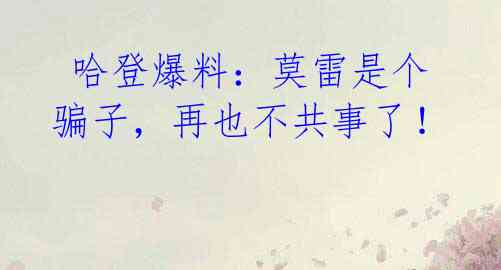 哈登爆料：莫雷是个
骗子，再也不共事了！